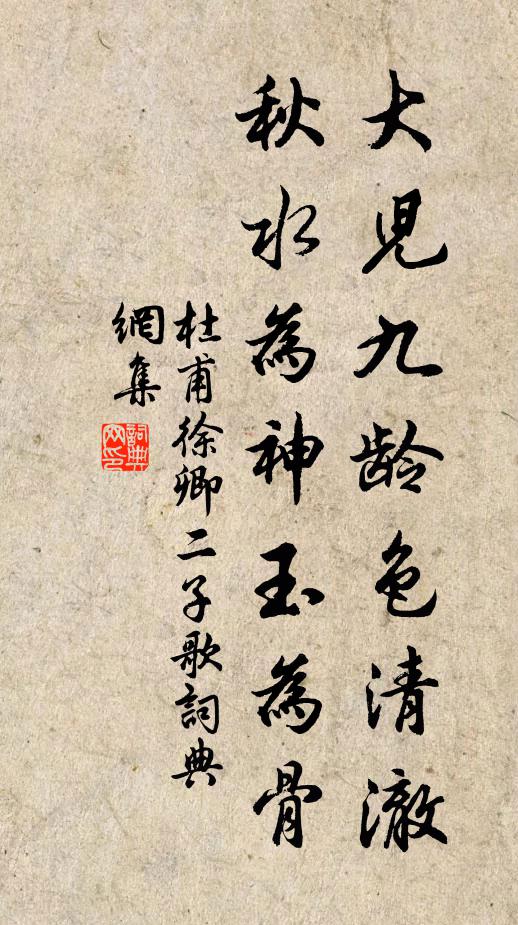 大児九龄色清澈
秋水為神玉為骨
杜甫徐卿二子歌詞典
網集
詞典
网印